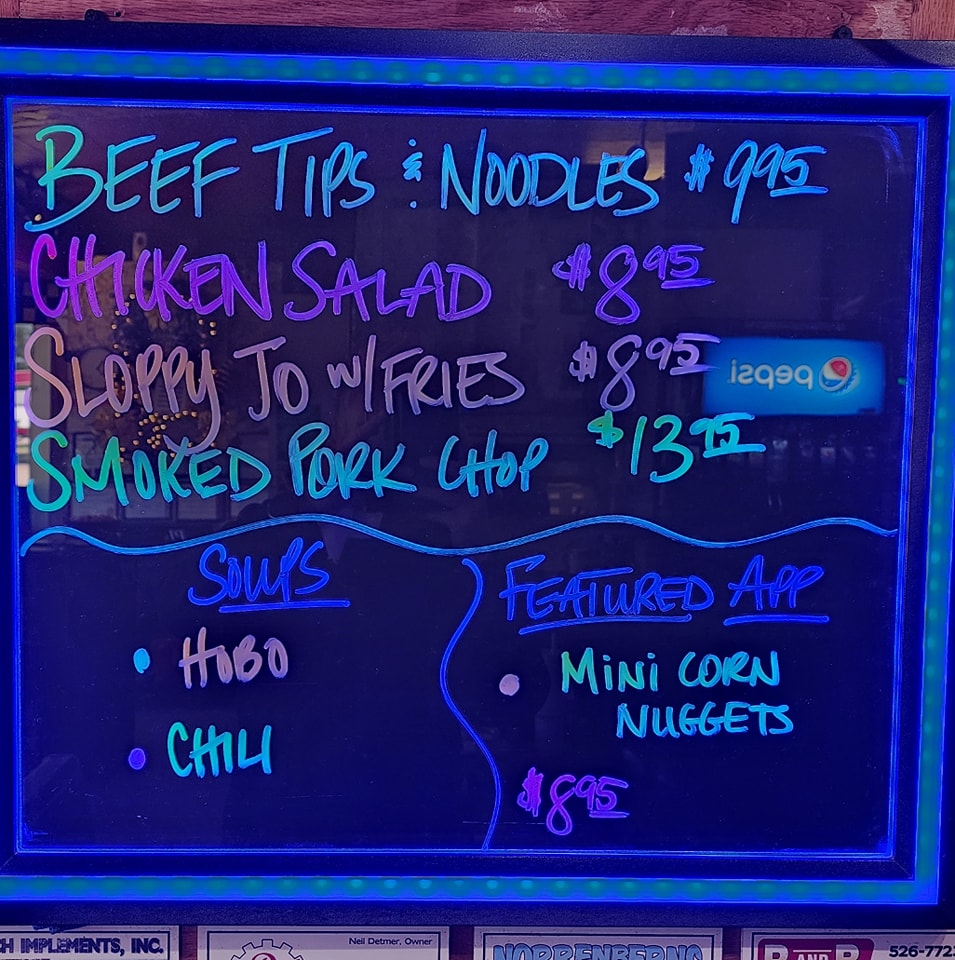 BEEF TIPS & NOODLES $9.95
CHICKEN SALAD $8.95
SLOPPY JO W/FRIES $8.95
pepsi
SMOKED PORK CHOP $13.95
SOUPS
• HOBO
• CHILI
FEATURED APP
• MINI CORN
NUGGETS
$8.95
CH IMPLEMENTS, INC.
Neil Detmer, Owner
R AND R
526-772